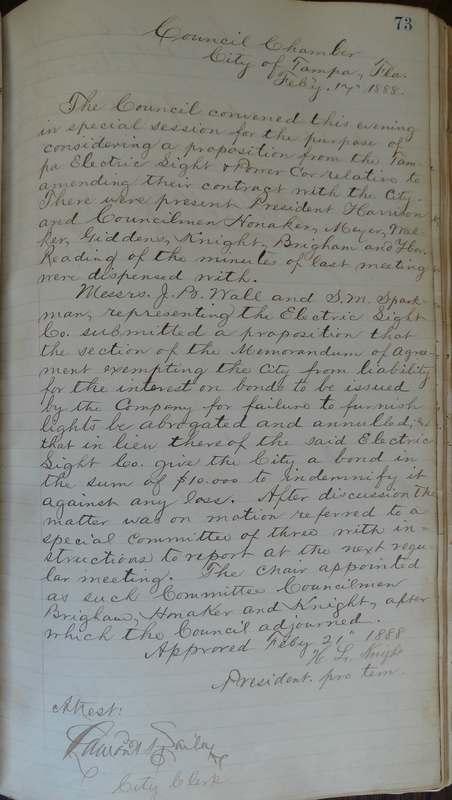 73
Council Chamber
City of Tampa, Fla.
Feb'y. 17" 1888.
The Council convened this evening
in special session for the purpose of
considering a proposition from the Tam-
pa Electric Light & Power Co. relative to
amending their contract with the City.
There were present President Harrison
and Councilmen Honaker, Meyer, Wal-
ker, Giddens, Knight, Brigham and
Reading of the minutes of last meeting
were dispensed with.
Messrs. J. B. Wall and S. M. Spark-
man, representing the Electric Light
Co. submitted a proposition that
the section of the Memorandum of agree-
ment exempting the City from liability
for the interest on bonds to be issued
by the Company for failure to furnish
lights be abrogated and annulled, and
that in lieu thereof the said Electric
Light Co. give the City a bond in
the sum of $10.000 to indemnify it
against any loss. After discussion the
matter was on motion referred to a
special committee of three with in-
structions to report at the next regu-
lar meeting. The chair appointed
as such Committee Councilmen
Brigham, Honaker and Knight, after
which the Council adjourned.
Approved Feby 21" 1888
L. Knight
President pro tem.
Attest:
City Clerk